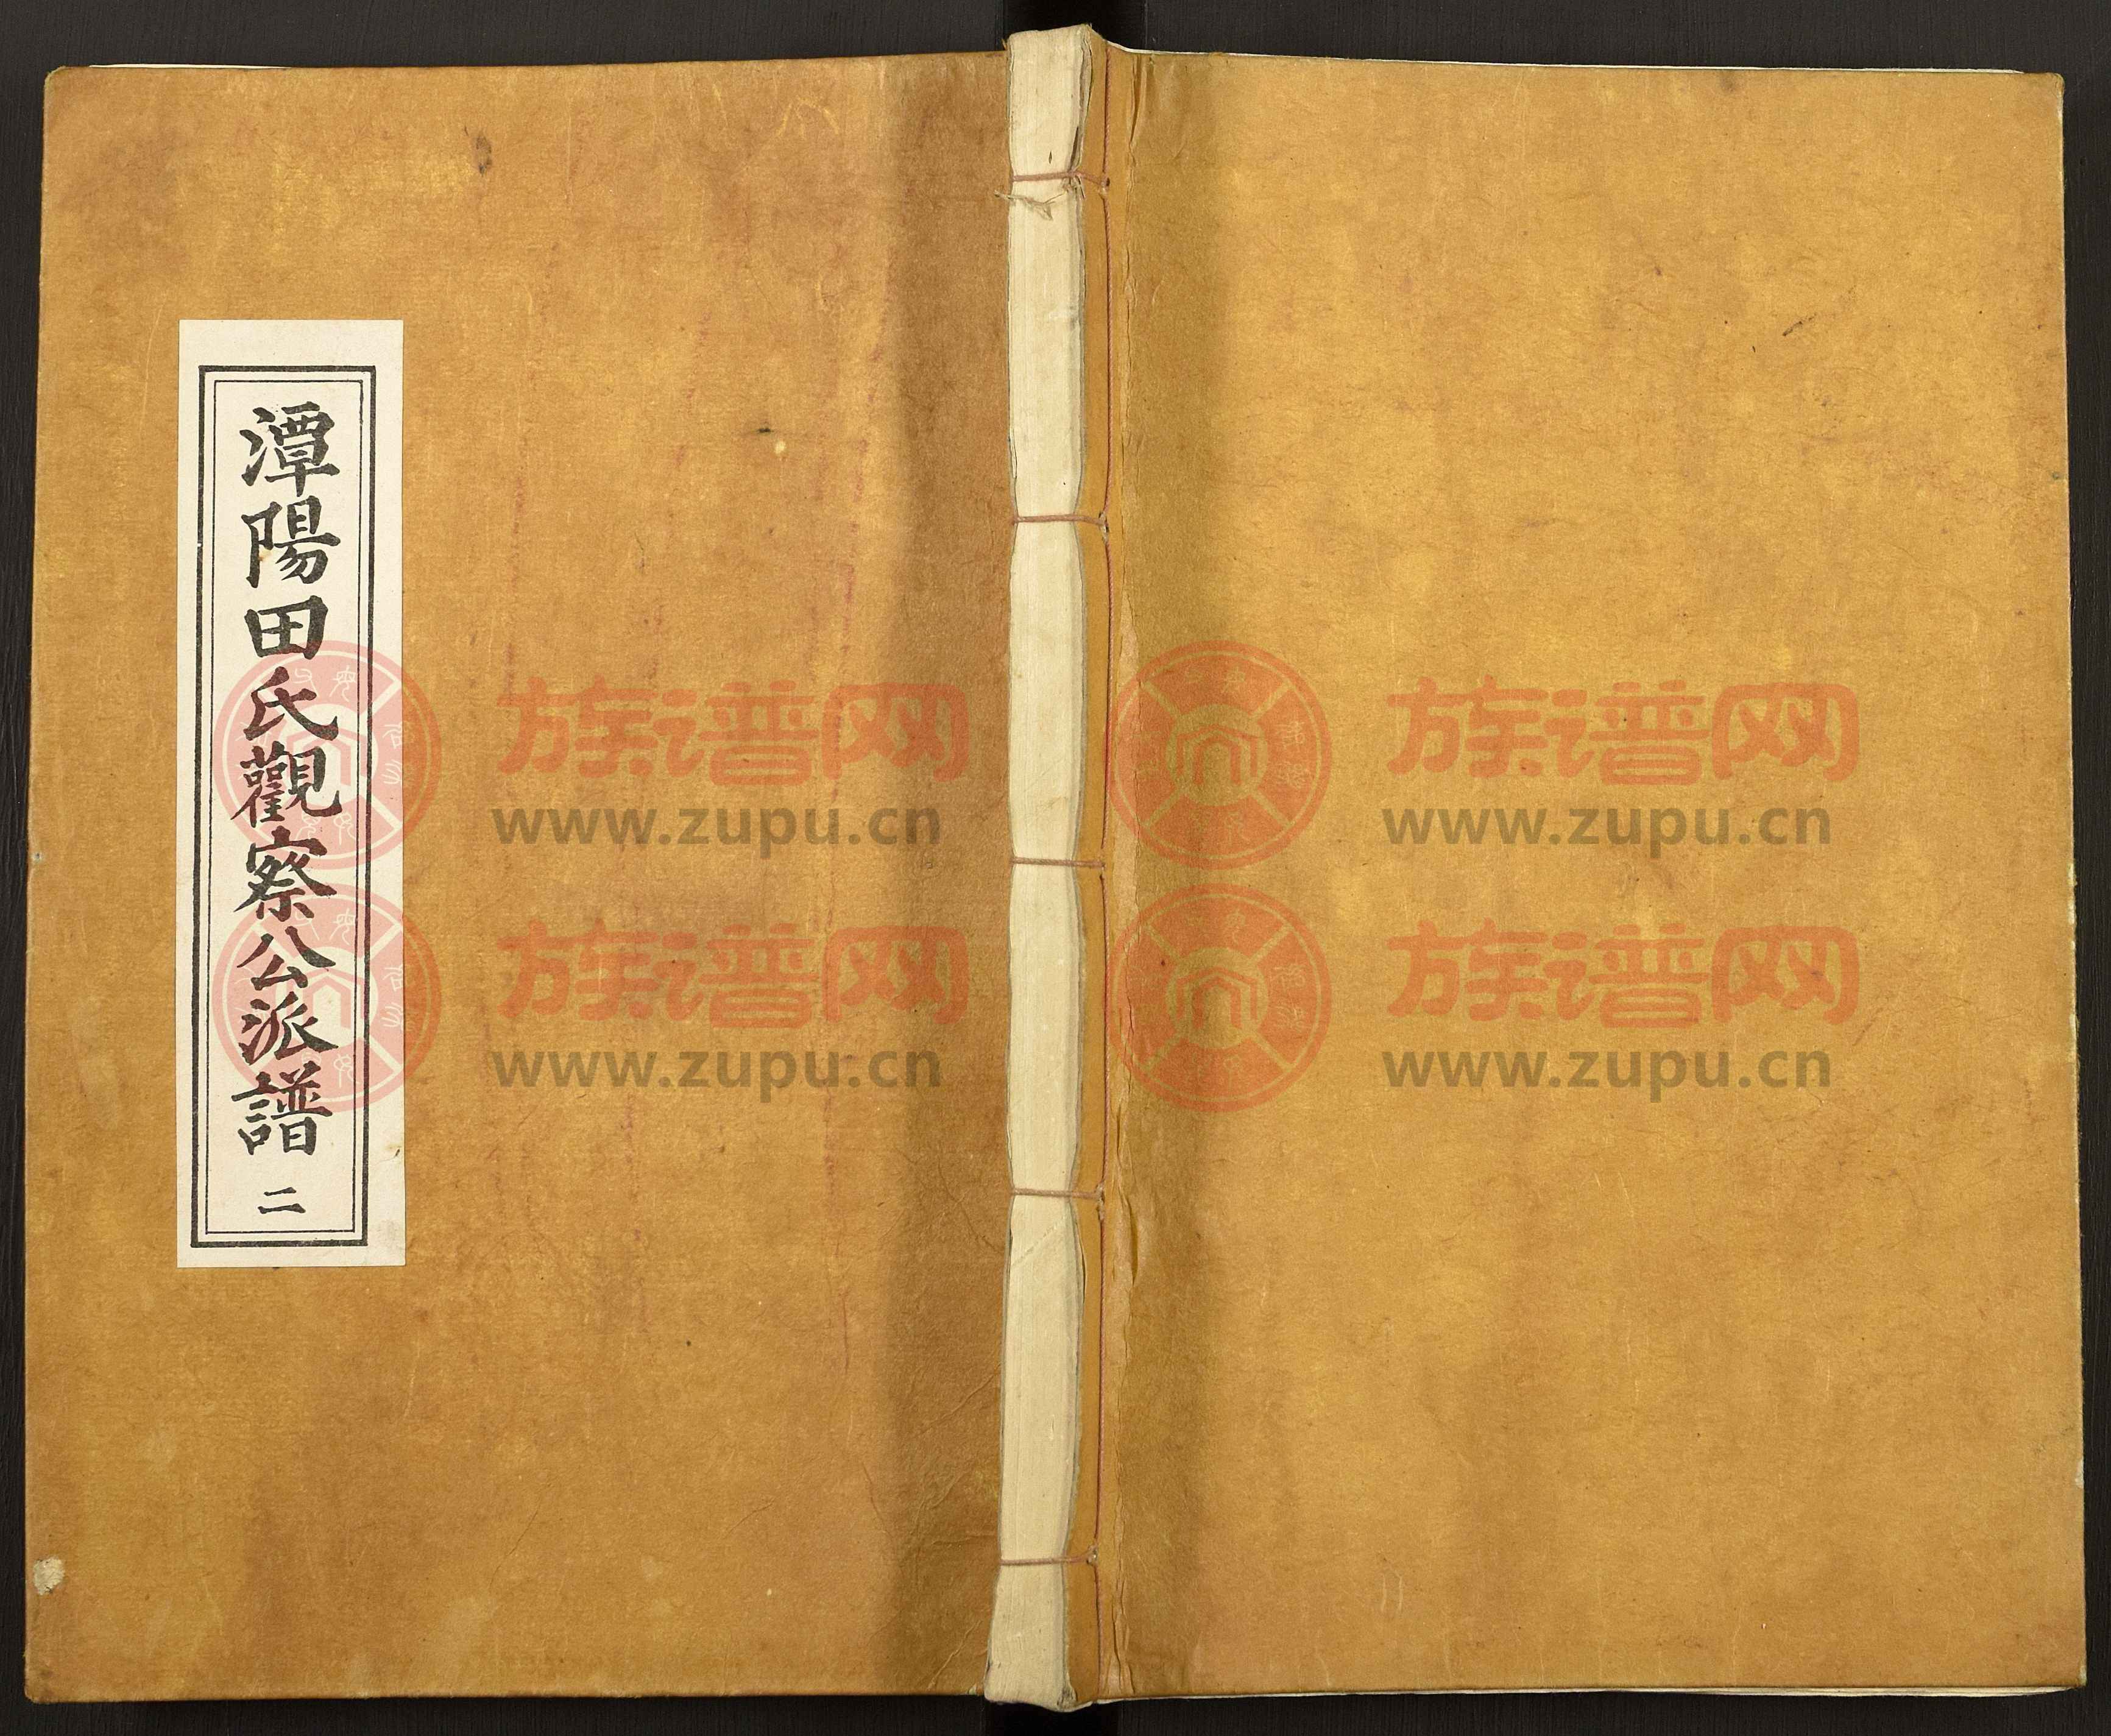 潭陽田氏觀察公派譜 二
族谱网
www.zupu.cn
族谱网
www.zupu.cn
族谱网
www.zupu.cn
族谱网
www.zupu.cn